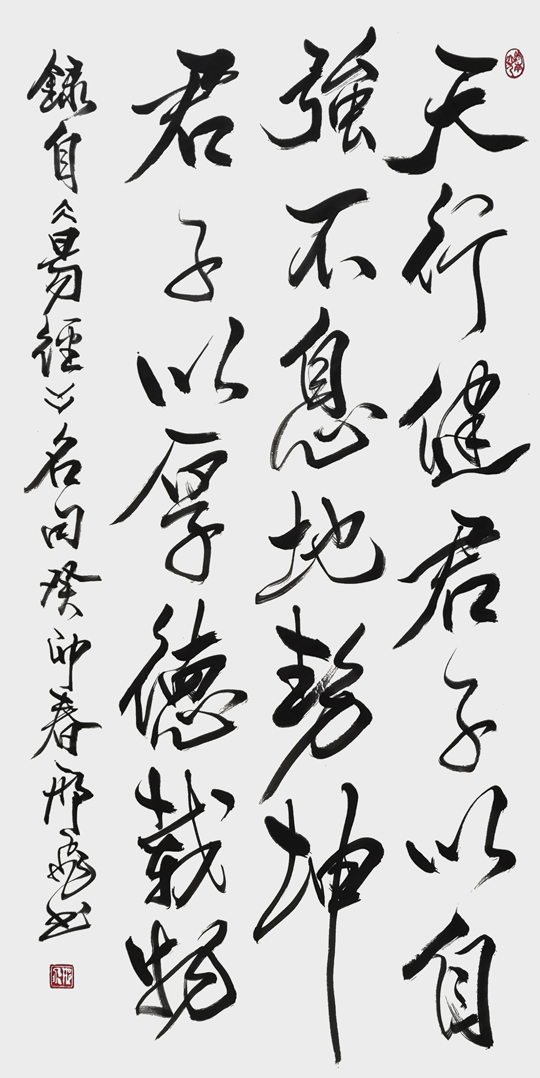 天行健君子以自
強不息地势坤
君子以厚德載物
錄自《易經》名句癸卯春邢飛书